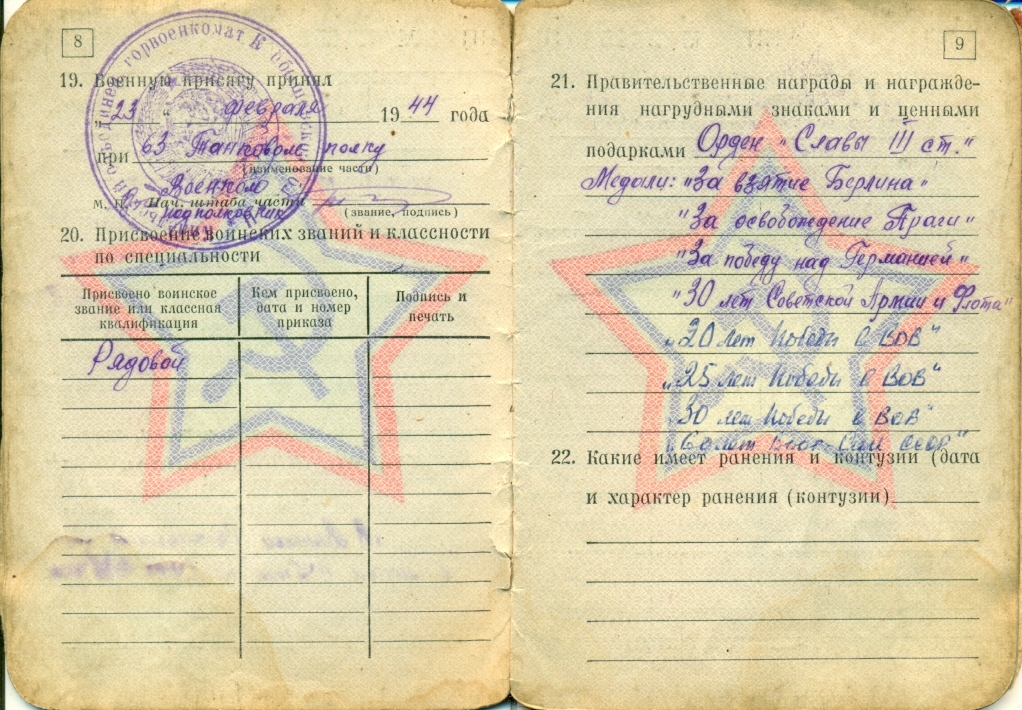 8
19. Военную присягу принял
"23" февраля 1944 года
при 63 Танковом полку
(наименование части)
Военком
М. П. Нач. штаба части
подполковник
(звание, подпись)
20. Присвоение воинских званий и классности
по специальности
Присвоено воинское звание или классная квалификация
Кем присвоено, дата и номер приказа
Подпись и печать
Рядовой
9
21. Правительственные награды и награжде-
ния нагрудными знаками и ценными
подарками Орден "Славы III ст."
Медали: "За взятие Берлина"
"За освобождение Праги"
"За победу над Германией"
"30 лет Советской Армии и Флота"
"20 лет Победы в ВОВ"
"25 лет Победы в ВОВ"
30 лет Победы в ВОВ"
"60 лет Воор. Сил СССР"
22. Какие имеет ранения и контузии (дата
и характер ранения (контузии)